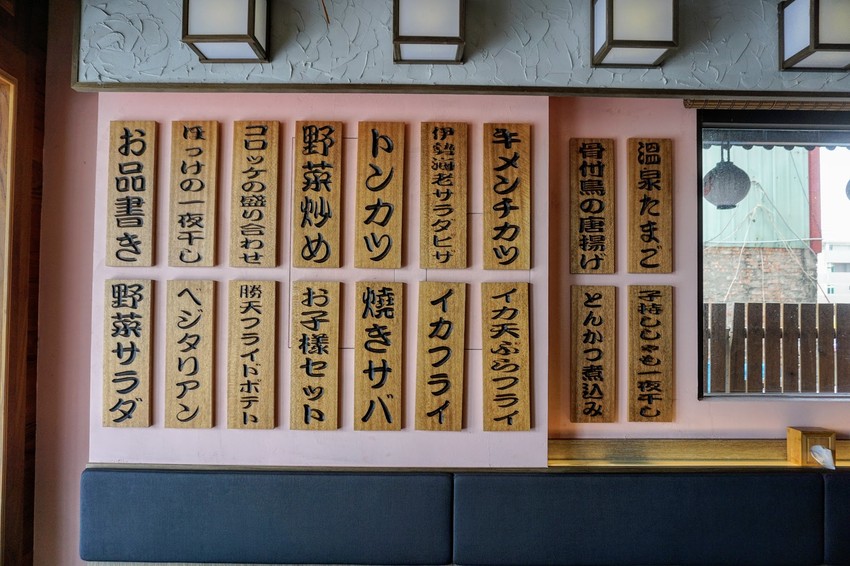 お品書き
ほっけの一夜干し
コロッケの盛り合わせ
野菜炒め
トンカツ
伊勢海老サラダピザ
牛メンチカツ
骨付鳥の唐揚げ
温泉たまご
野菜サラダ
ヘジタリアン
勝天フライドポテト
お子様セット
焼きサバ
イカフライ
イカ天ぷらフライ
とんかつ煮込み
子持ししゃも一夜干し